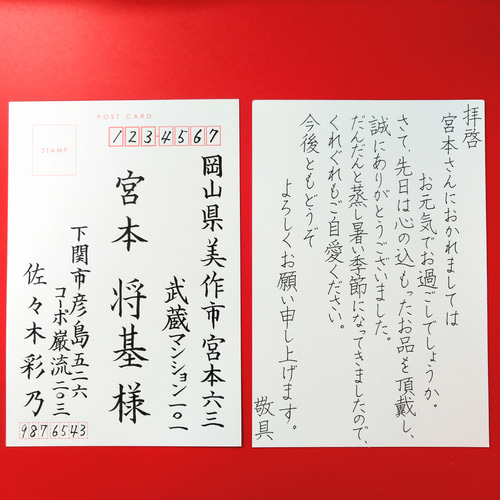 POST CARD
STAMP
1234567
岡山県美作市宮本六三
武蔵マンション一〇一
宮本 将基 様
下関市彦島五二六
コーポ巌流二〇三
佐々木彩乃
9876543
拝啓
宮本さんにおかれましては
お元気でお過ごしでしょうか。
さて、先日は心の込もったお品を頂戴し、
誠にありがとうございました。
だんだんと蒸し暑い季節になってきましたので、
くれぐれもご自愛ください。
今後ともどうぞ
よろしくお願い申し上げます。
敬具